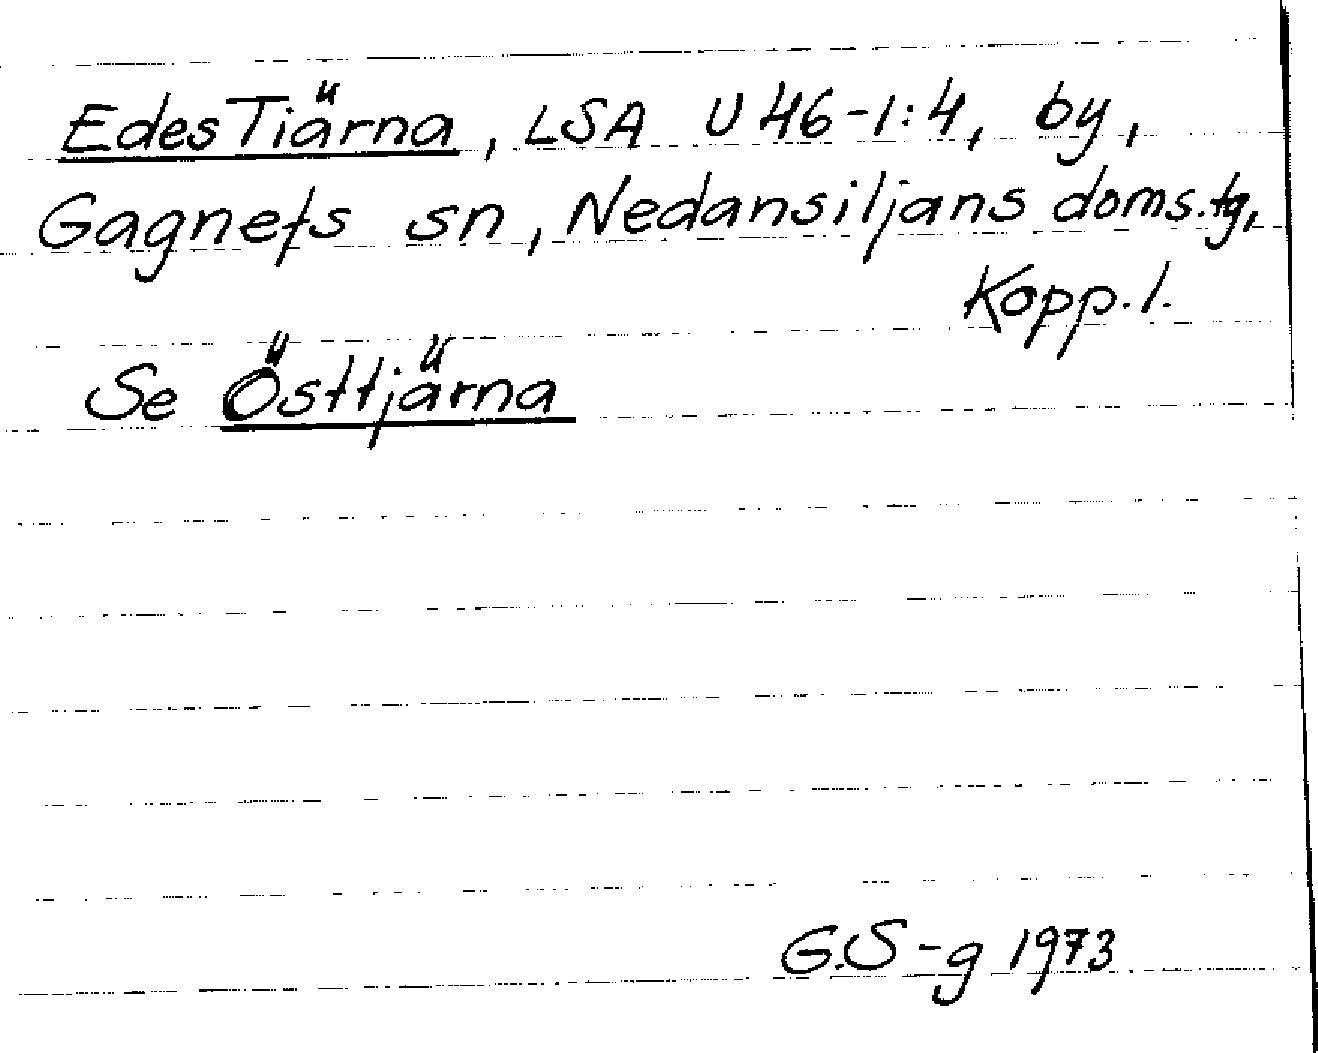 Edes Tiärna, LSA U46-1:4, by,
Gagnefs sn, Nedansiljans doms.tg,
Kopp. l.
Se Östtjärna
G.S-g 1973